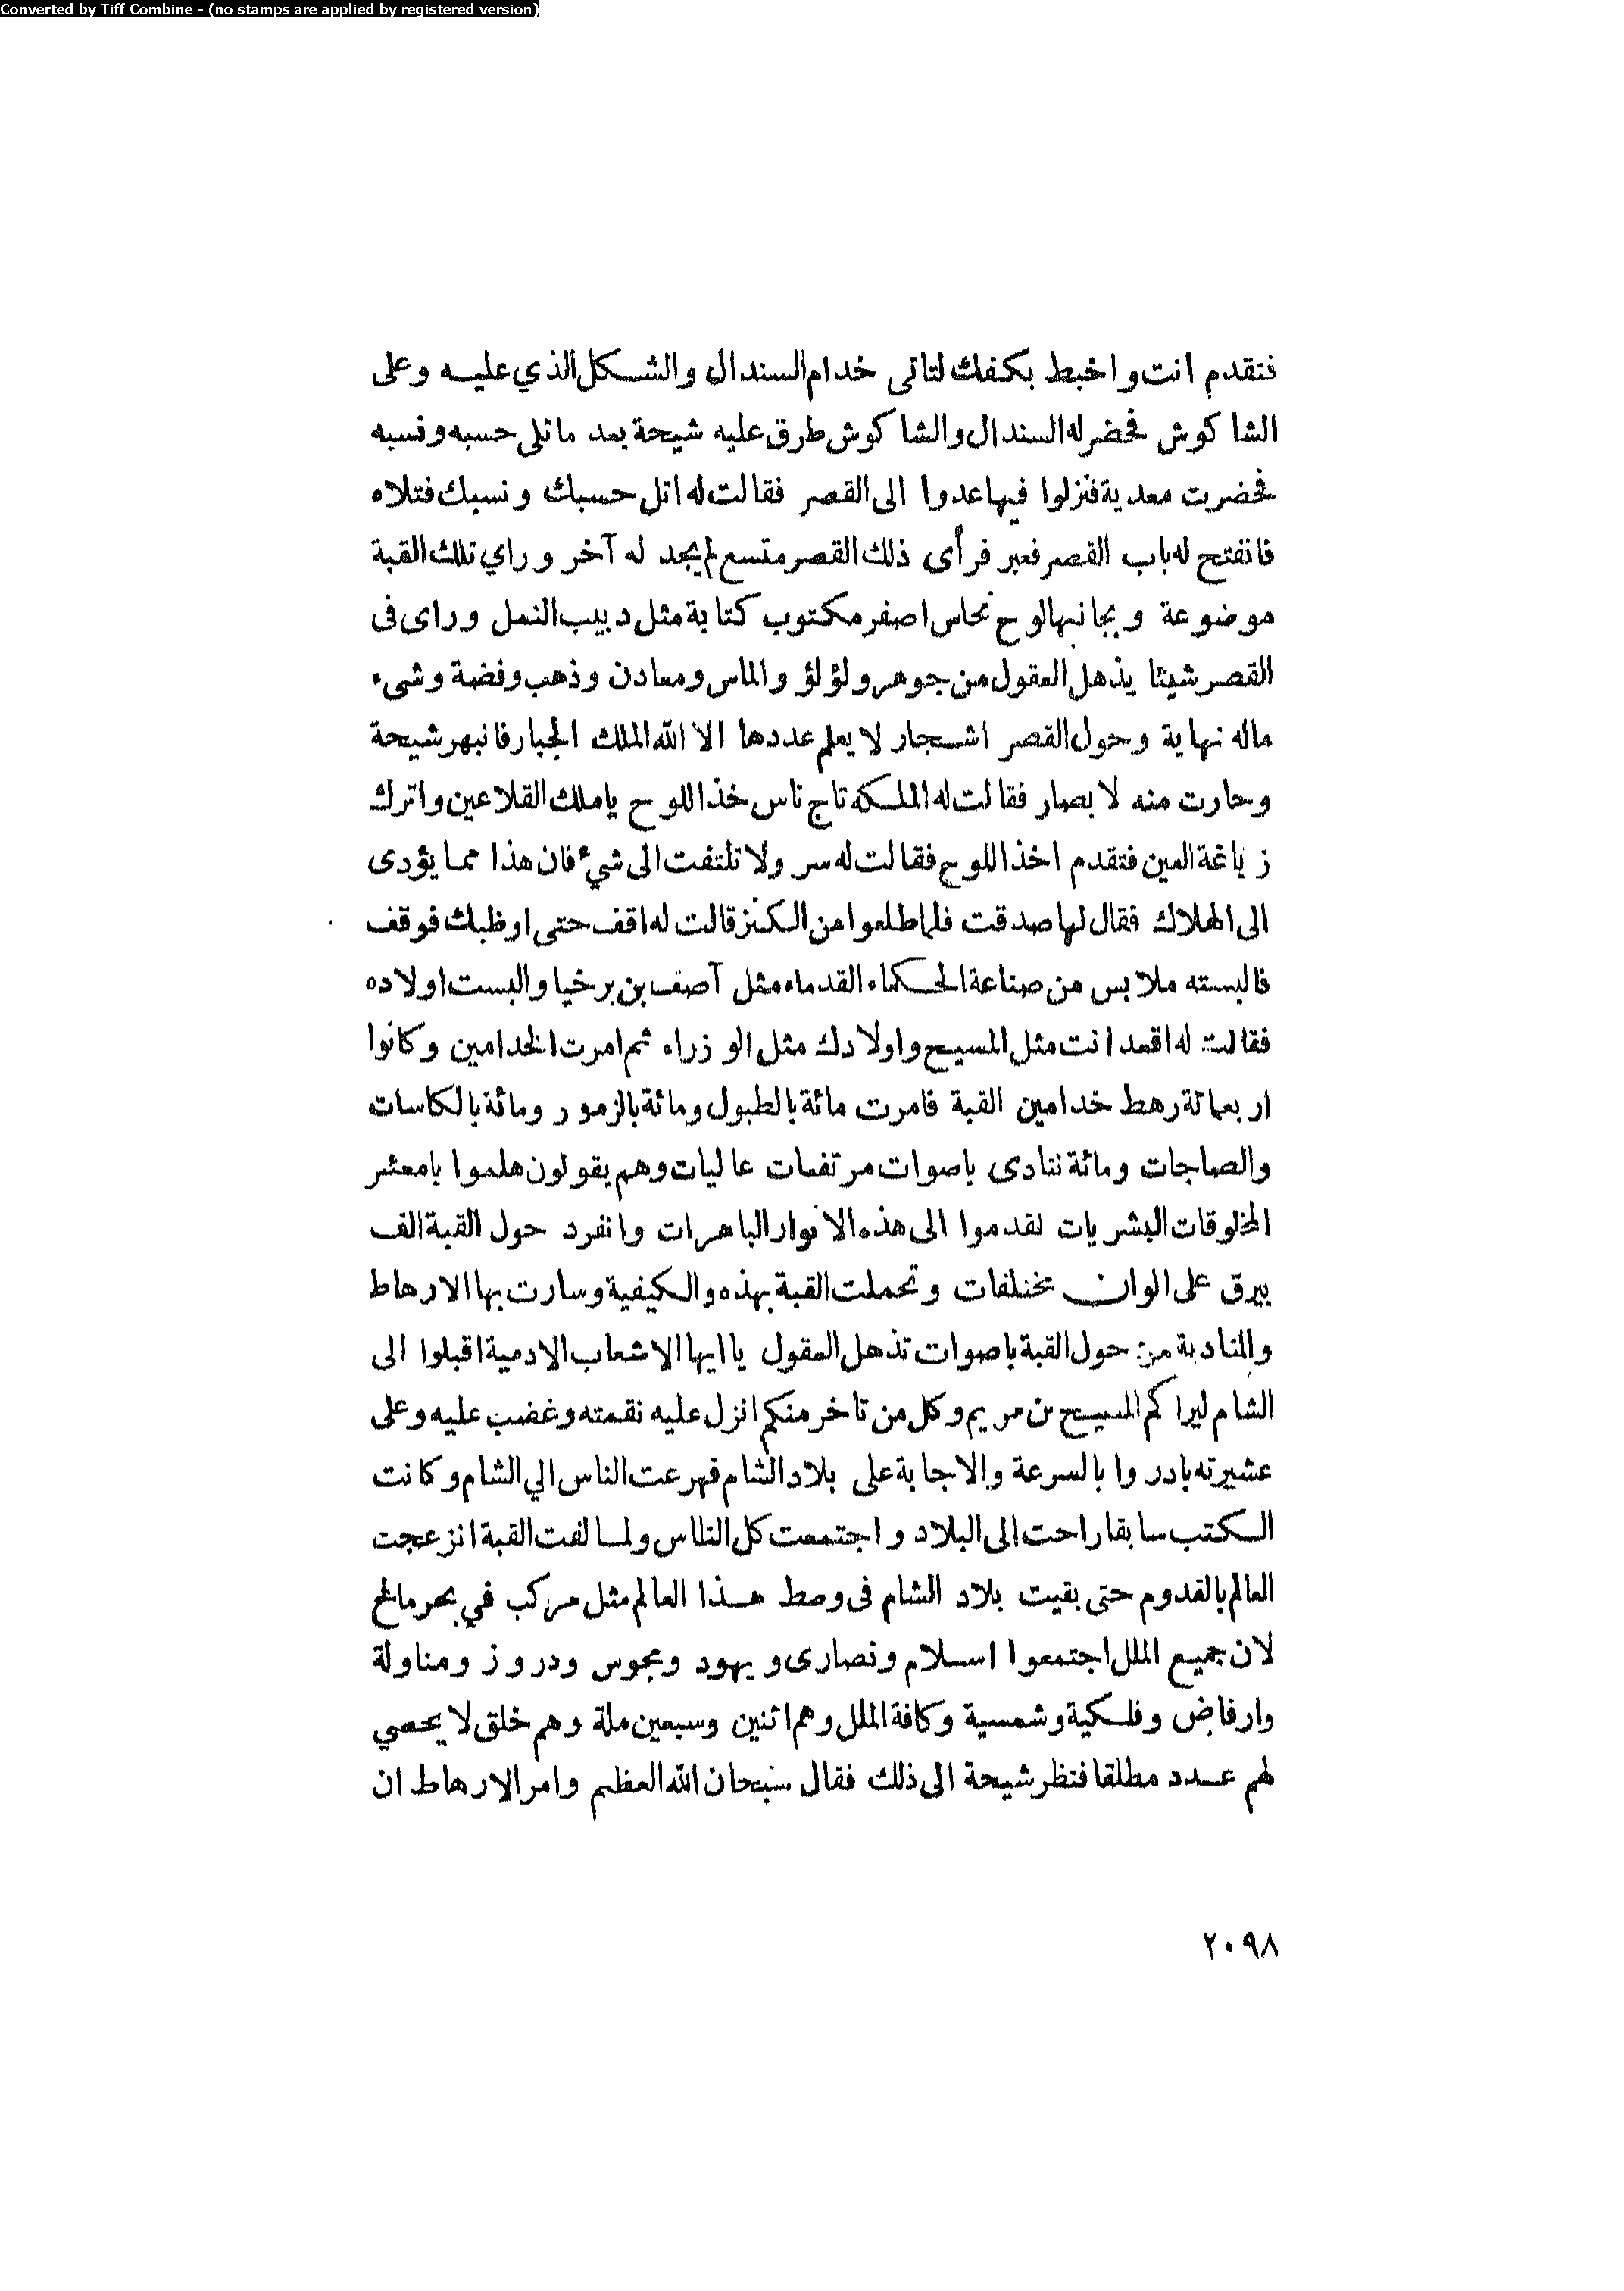 Converted by Tiff Combine - (no stamps are applied by registered version)
فتقدم انت واخبط بكفك لتاتى خدام السندال والشكل الذي عليه وعلى
الشاكوش فحضر له السندال والشاكوش طرق عليه شيحة بعد ماتلى حسبه ونسبه
فحضرت معدية فنزلوا فيها عدوا الى القصر فقالت له اتل حسبك ونسبك فتلاه
فانفتح له باب القصر فعبر فرأى ذلك القصر متسع لم يجد له آخر وراي تلك القبة
موضوعة وبجانبها لوح نحاس اصفر مكتوب كتابة مثل دبيب النمل وراى فى
القصر شيئا يذهل العقول من جوهر ولؤلؤ والماس ومعادن وذهب وفضة وشىء
ماله نهاية وحول القصر اشجار لا يعلم عددها الا الله الملك الجبار فانبهر شيحة
وحارت منه لابصار فقالت له الملكه تاج ناس خذ اللوح ياملك القلاعين واترك
زياغة العين فتقدم اخذ اللوح فقالت له سر ولا تلتفت الى شيء فان هذا مما يؤدى
الى الهلاك فقال لها صدقت فلما طلعوا من الكنز قالت له اقف حتى اوظبك فوقف
فالبسته ملابس من صناعة الحكماء القدماء مثل آصف بن برخيا والبست اولاده
فقالت له اقعد انت مثل المسيح واولادك مثل الوزراء ثم امرت الخدامين وكانوا
اربعمائة رهط خدامين القبة فامرت مائة بالطبول ومائة بالزمور ومائة بالكاسات
والصاجات ومائة تنادى باصوات مرتفعات عاليات وهم يقولون هلموا يامعشر
المخلوقات البشريات تقدموا الى هذه الانوار الباهرات وانفرد حول القبة الف
بيرق على الوان مختلفات وتحملت القبة بهذه والكيفية وسارت بها الارهاط
والمنادية من حول القبة باصوات تذهل العقول يا ايها الاشعاب الادمية اقبلوا الى
الشام ليراكم المسيح بن مريم وكل من تاخر منكم انزل عليه نقمته وغضب عليه وعلى
عشيرته بادروا بالسرعة والاجابة على بلاد الشام فهرعت الناس الي الشام وكانت
الكتب سابقا راحت الى البلاد واجتمعت كل النااس ولما لفت القبة انزعجت
العالم بالقدوم حتى بقيت بلاد الشام فى وصط هذا العالم مثل مركب في بحر مالح
لان جميع الملل اجتمعوا اسلام ونصارى ويهود ومجوس ودروز ومناولة
وارفاض وفلكية وشمسية وكافة الملل وهم اثنين وسبعين ملة وهم خلق لا يحصي
لهم عدد مطلقا فنظر شيحة الى ذلك فقال سبحان الله العظيم وامر الارهاط ان
٢٠٩٨